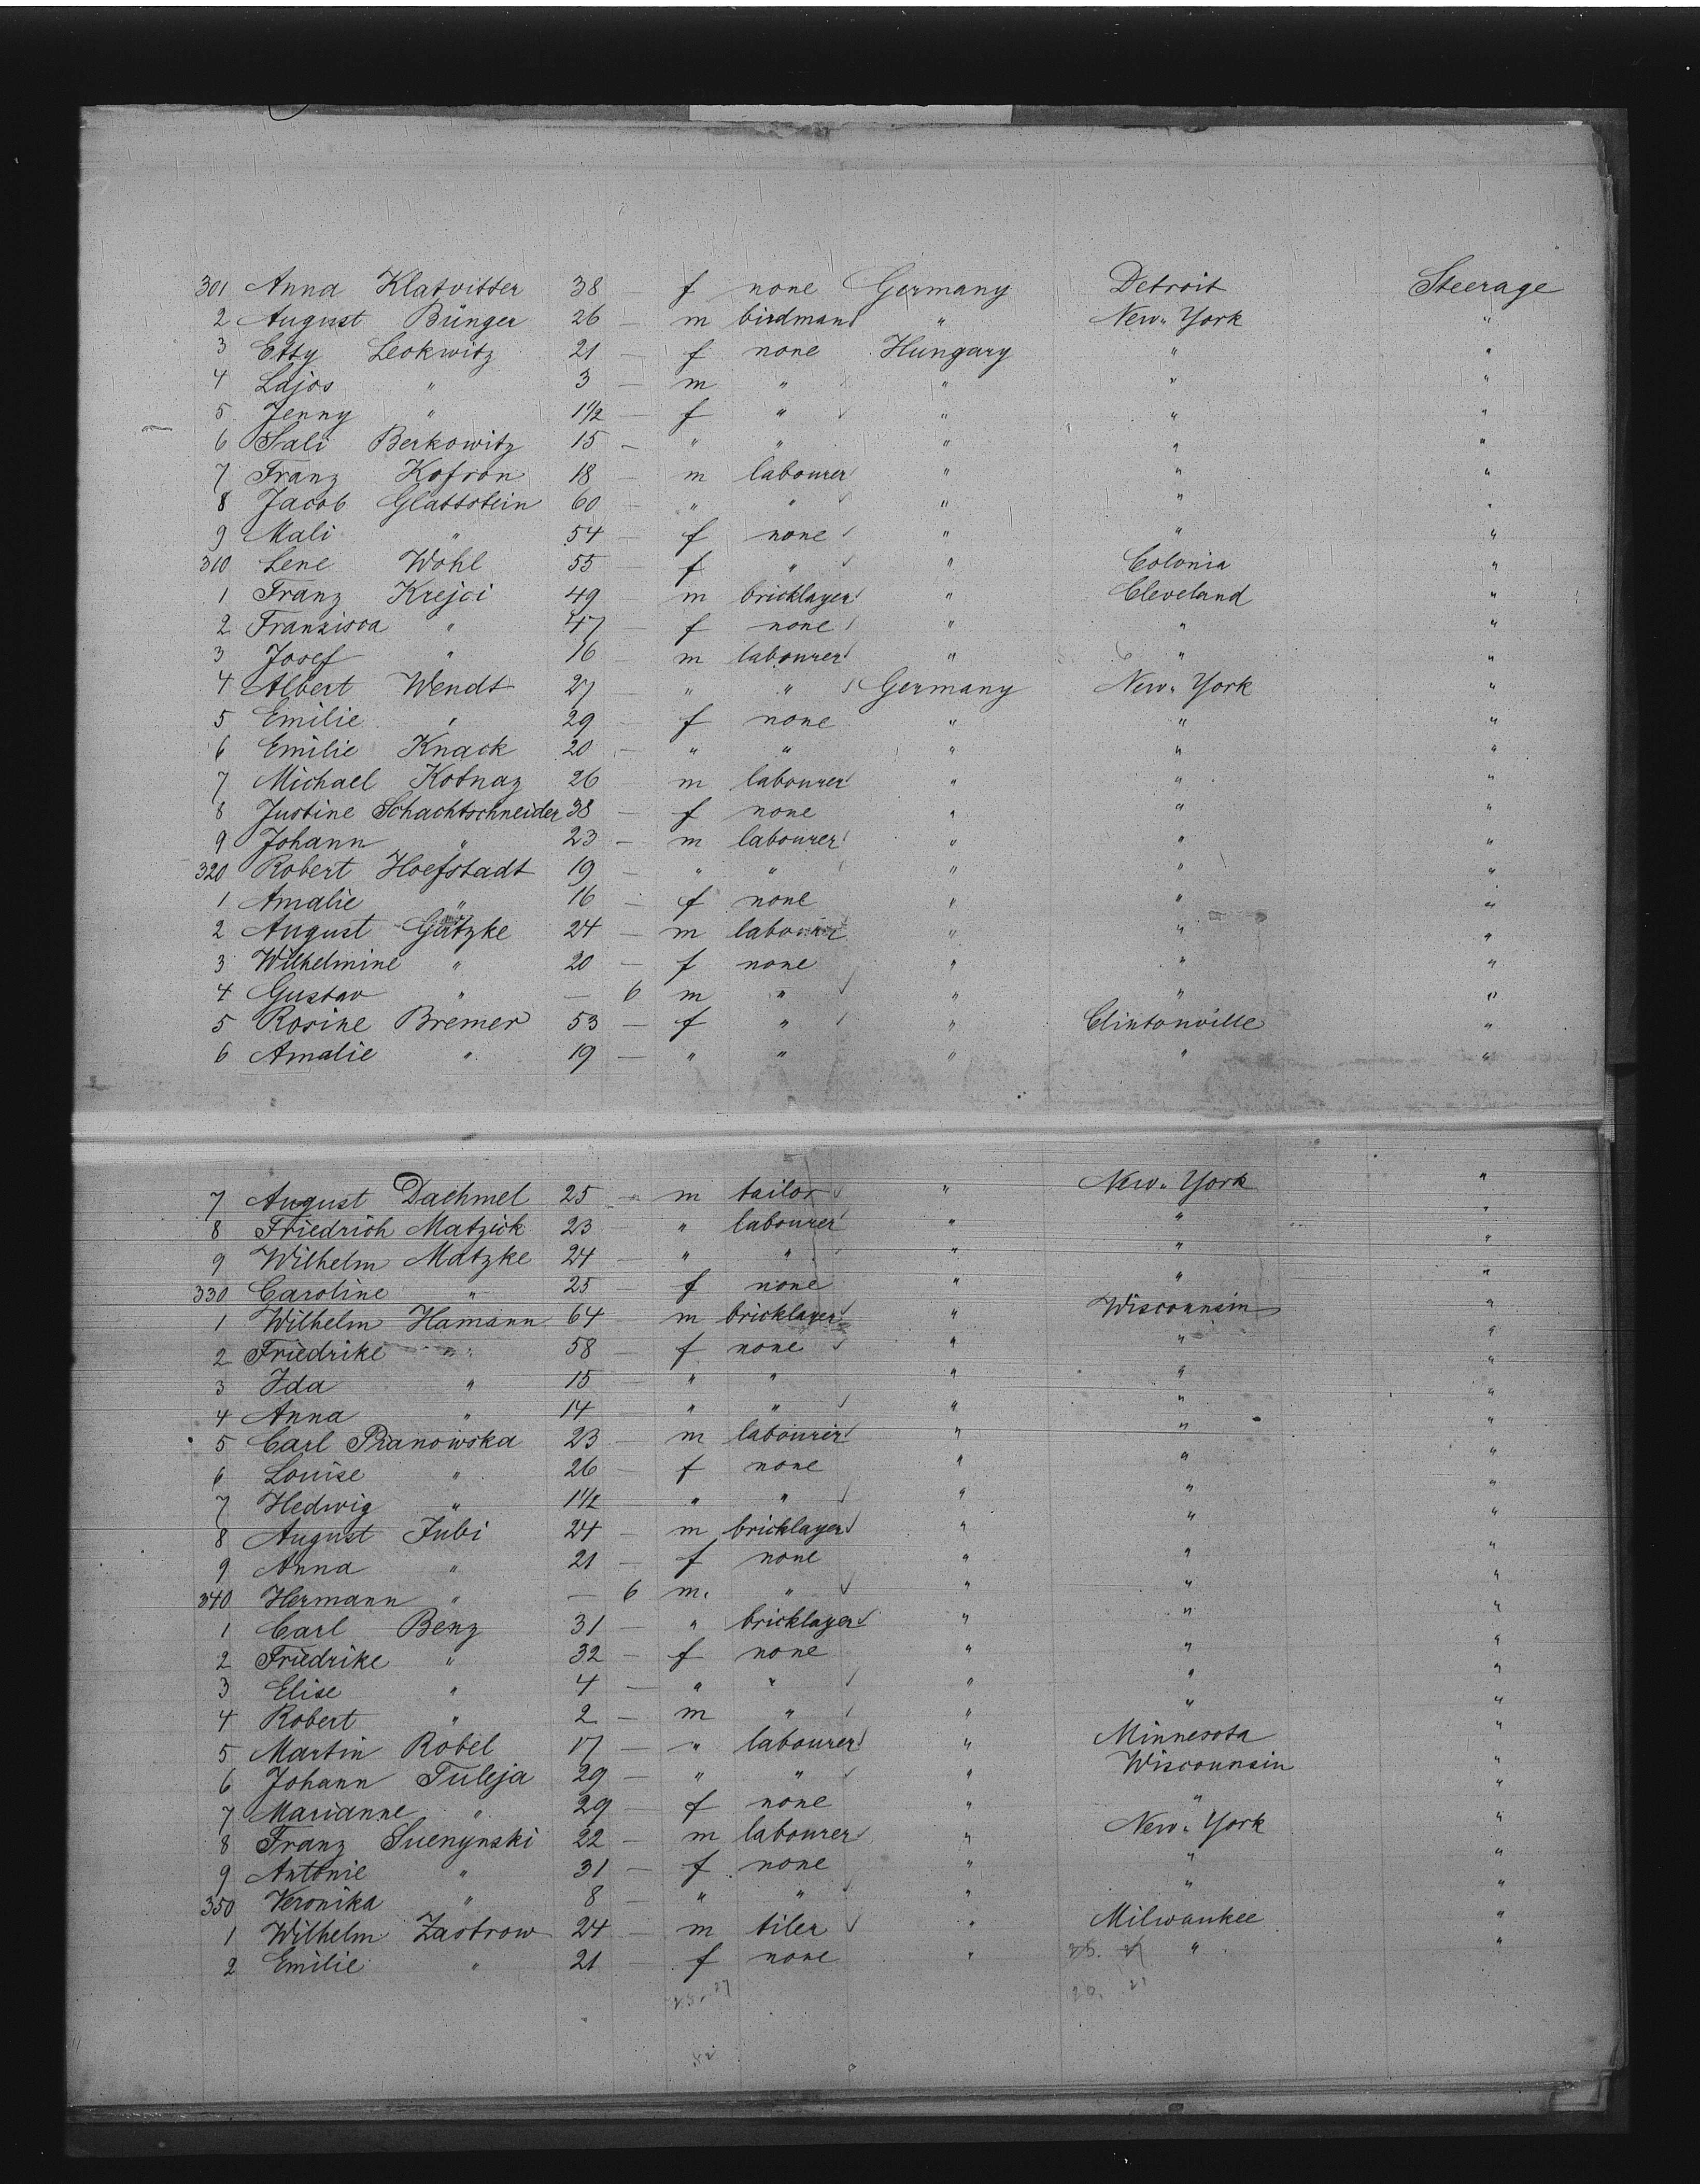 301 Anna Klatvitter 38 — f none Germany Detroit Steerage
2 August Bünger 26 — m birdman " New-York "
3 Etty Leokwitz 21 — f none Hungary " "
4 Lajos " 3 — m " " " "
5 Jenny " 1 1/2 — f " " " "
6 Sali Berkowitz 15 — " " " " "
7 Franz Kofron 18 — m labourer " " "
8 Jacob Glattstein 60 — " " " " "
9 Mali " 54 — f none " " "
310 Lene Wohl 55 — f " " Colonia "
1 Franz Krejci 49 — m bricklayer " Cleveland "
2 Franzisca " 47 — f none " " "
3 Josef " 16 — m labourer " " "
4 Albert Wendt 27 — " " Germany New-York "
5 Emilie " 29 — f none " " "
6 Emilie Knack 20 — " " " " "
7 Michael Kotnaz 26 — m labourer " " "
8 Justine Schachtschneider 38 — f none " " "
9 Johann " 23 — m labourer " " "
320 Robert Hoefstadt 19 — " " " " "
1 Amalie " 16 — f none " " "
2 August Gützke 24 — m labourer " " "
3 Wilhelmine " 20 — f none " " "
4 Gustav " — 6 m " " " "
5 Rosine Bremer 53 — f " " Clintonville "
6 Amalie " 19 — " " " " "
7 August Dachmel 25 — m tailor " New-York "
8 Friedrich Matzick 23 — " labourer " " "
9 Wilhelm Matzke 24 — " " " " "
330 Caroline " 25 — f none " " "
1 Wilhelm Hamann 64 — m bricklayer " Wisconnsin "
2 Friedrike " 58 — f none " " "
3 Ida " 15 — " " " " "
4 Anna " 14 — " " " " "
5 Carl Pranowska 23 — m labourer " " "
6 Louise " 26 — f none " " "
7 Hedwig " 1 1/2 — " " " " "
8 August Jubi 24 — m bricklayer " " "
9 Anna " 21 — f none " " "
340 Hermann " — 6 m. " " " "
1 Carl Benz 31 — " bricklayer " " "
2 Friedrike " 32 — f none " " "
3 Elise " 4 — " " " " "
4 Robert " 2 — m " " " "
5 Martin Robel 17 — " labourer " Minnesota "
6 Johann Tuleja 29 — " " " Wisconnsin "
7 Marianne " 29 — f none " " "
8 Franz Suenynski 22 — m labourer " New-York "
9 Antonie " 31 — f none " " "
350 Veronika " 8 — " " " " "
1 Wilhelm Zastrow 24 — m tiler " Milwaukee "
2 Emilie " 21 — f none " " "